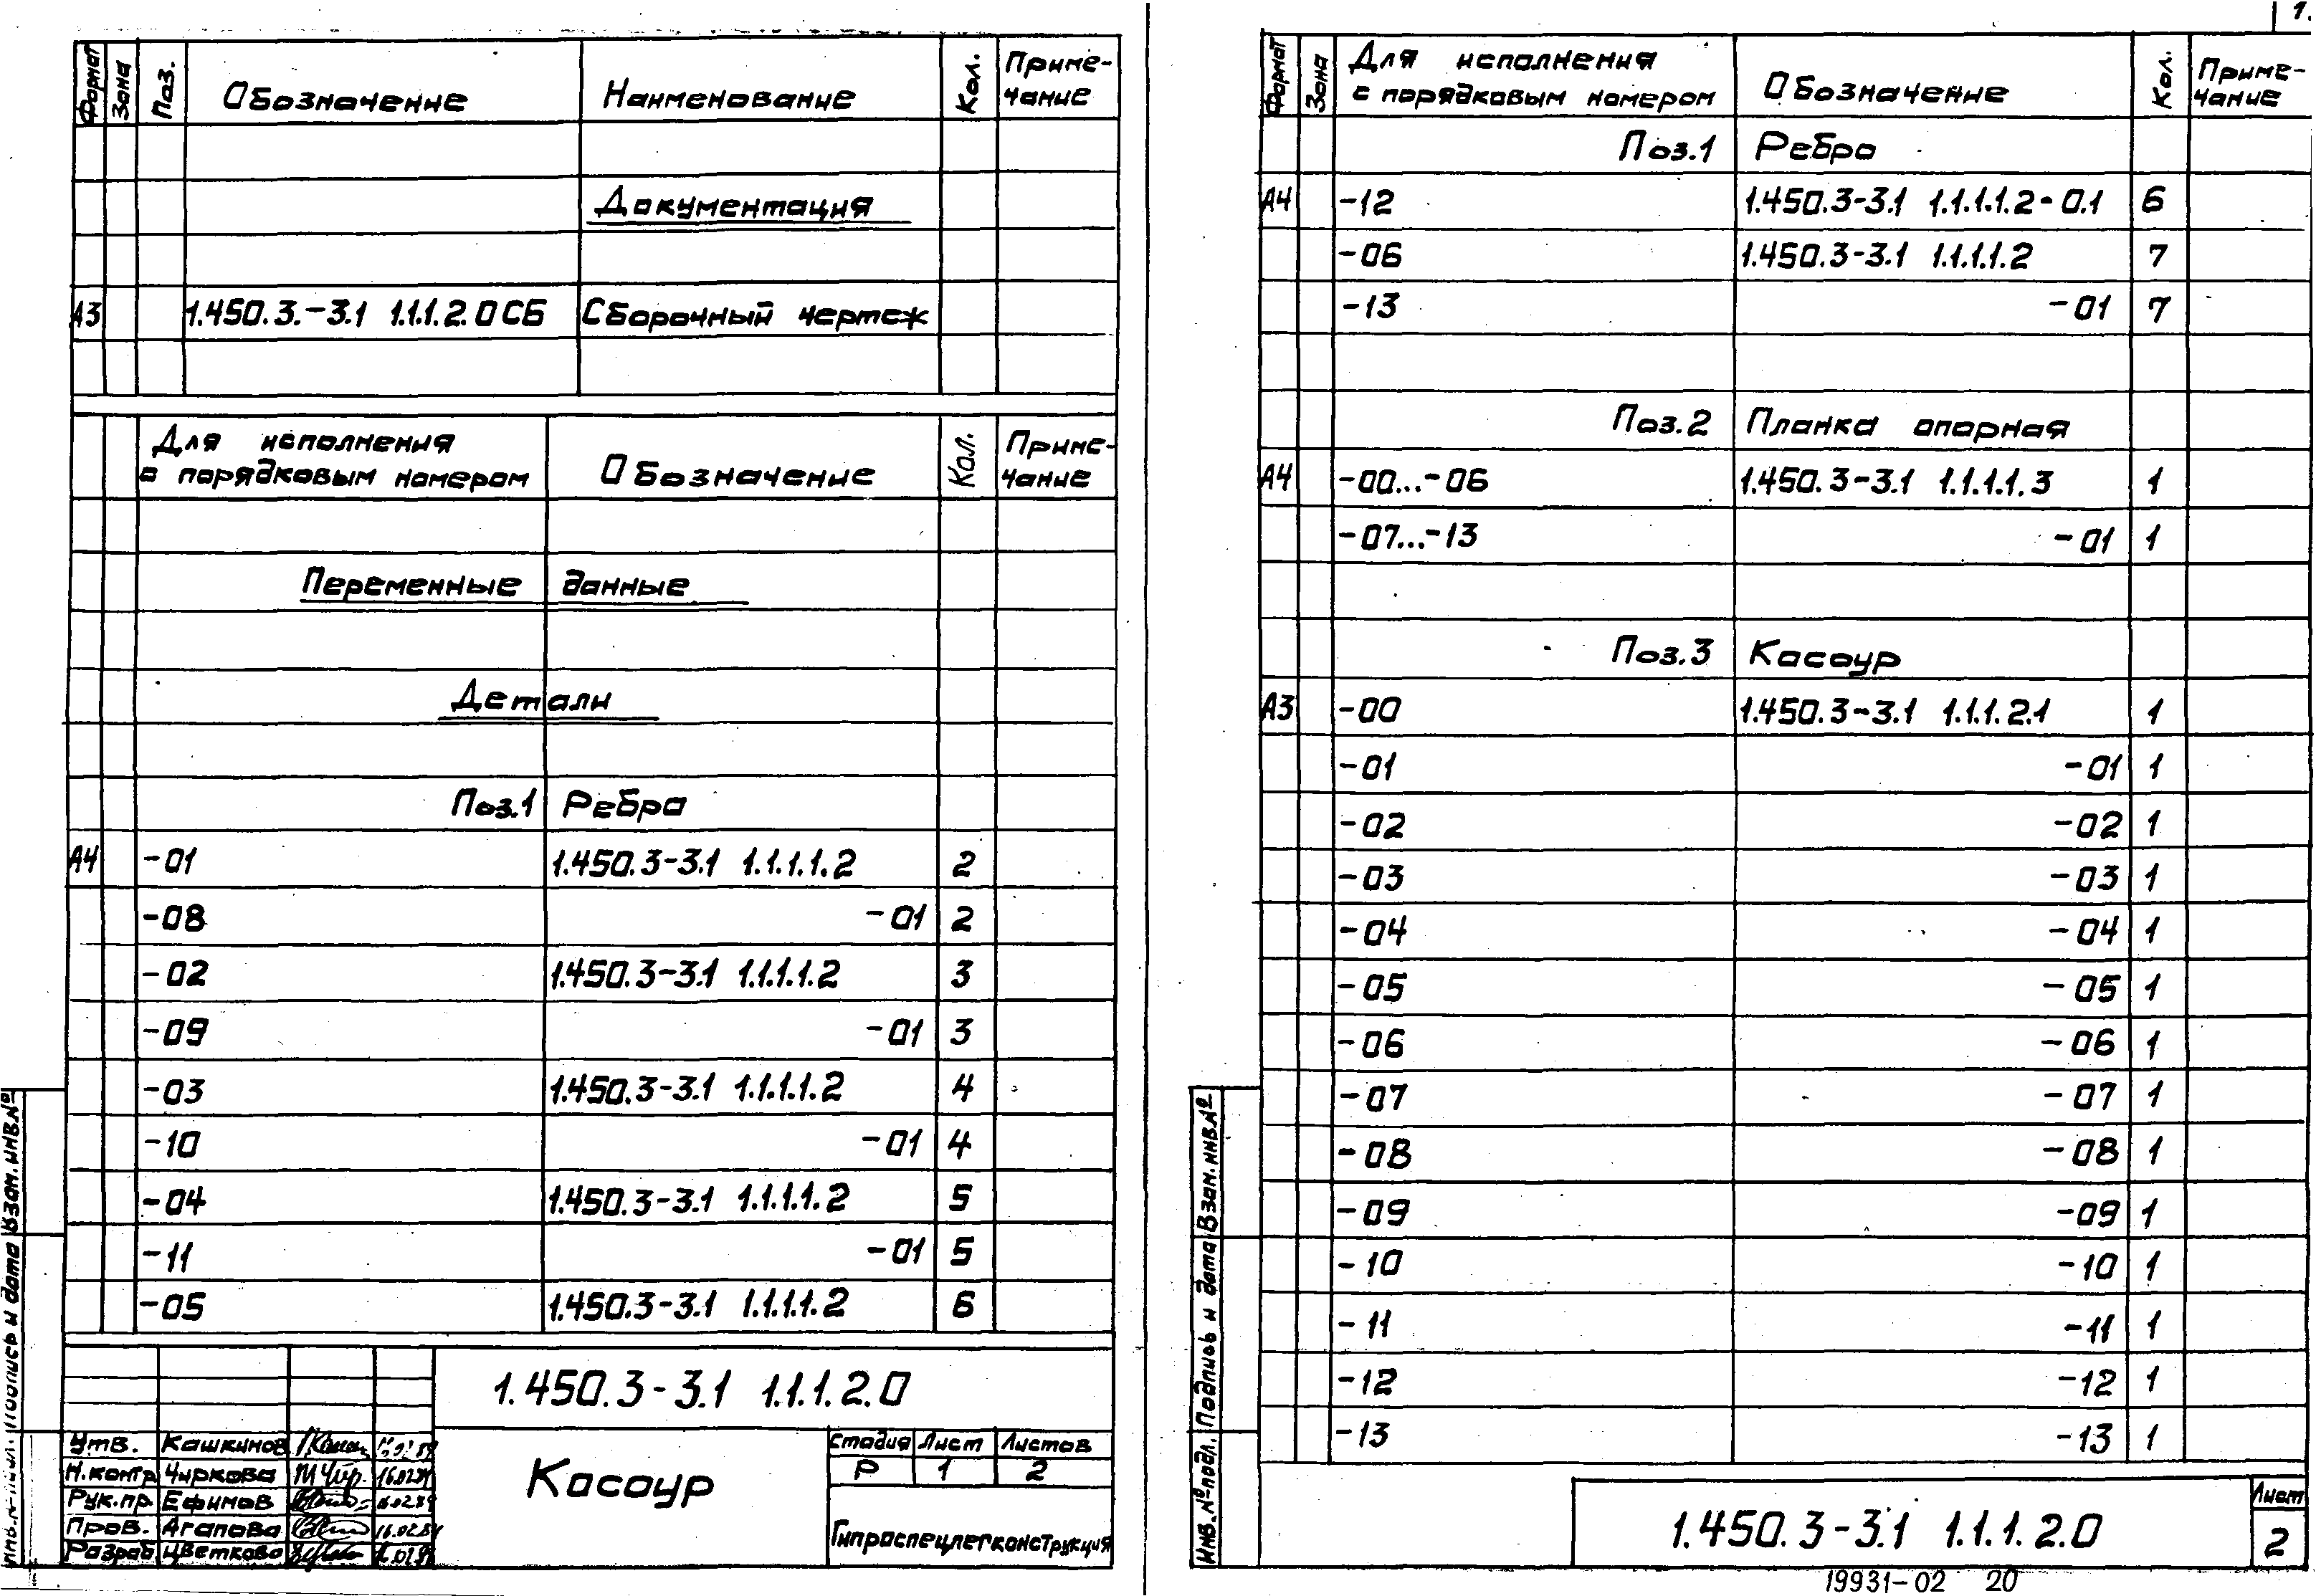 Формат Зона Поз. Обозначение Наименование Кол. Приме-
чание
Документация
А3 1.450.3.-3.1 1.1.1.2.0 СБ Сборочный чертеж
Для исполнения
с порядковым номером Обозначение Кол. Приме-
чание
Переменные данные
Детали
Поз.1 Ребра
А4 -01 1.450.3-3.1 1.1.1.1.2 2
-08 -01 2
-02 1.450.3-3.1 1.1.1.1.2 3
-09 -01 3
-03 1.450.3-3.1 1.1.1.1.2 4
-10 -01 4
-04 1.450.3-3.1 1.1.1.1.2 5
-11 -01 5
-05 1.450.3-3.1 1.1.1.1.2 6
1.450.3-3.1 1.1.1.2.0
Утв. Кашкинов
Н.контр. Чиркова 16.02.84
Рук.пр. Ефимов 16.02.84
Пров. Агапова 16.02.84
Разраб. Цветкова
Косоур
Стадия Лист Листов
Р 1 2
Гипроспецлегконструкция
подпись и дата Взам. инв.№
Формат Зона Для исполнения
с порядковым номером Обозначение Кол. Приме-
чание
Поз.1 Ребро
А4 -12 1.450.3-3.1 1.1.1.1.2-0.1 6
-06 1.450.3-3.1 1.1.1.1.2 7
-13 -01 7
Поз.2 Планка опорная
А4 -00...-06 1.450.3-3.1 1.1.1.1.3 1
-07...-13 -01 1
Поз.3 Косоур
А3 -00 1.450.3-3.1 1.1.1.2.1 1
-01 -01 1
-02 -02 1
-03 -03 1
-04 -04 1
-05 -05 1
-06 -06 1
-07 -07 1
-08 -08 1
-09 -09 1
-10 -10 1
-11 -11 1
-12 -12 1
-13 -13 1
Инв.№подл. Подпись и дата Взам.инв.№
1.450.3-3.1 1.1.1.2.0
Лист
2
19931-02 20